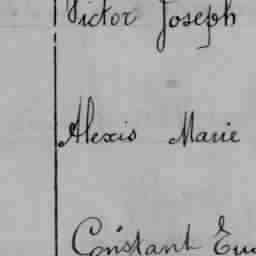 Victor Joseph
Alexis Marie
Constant